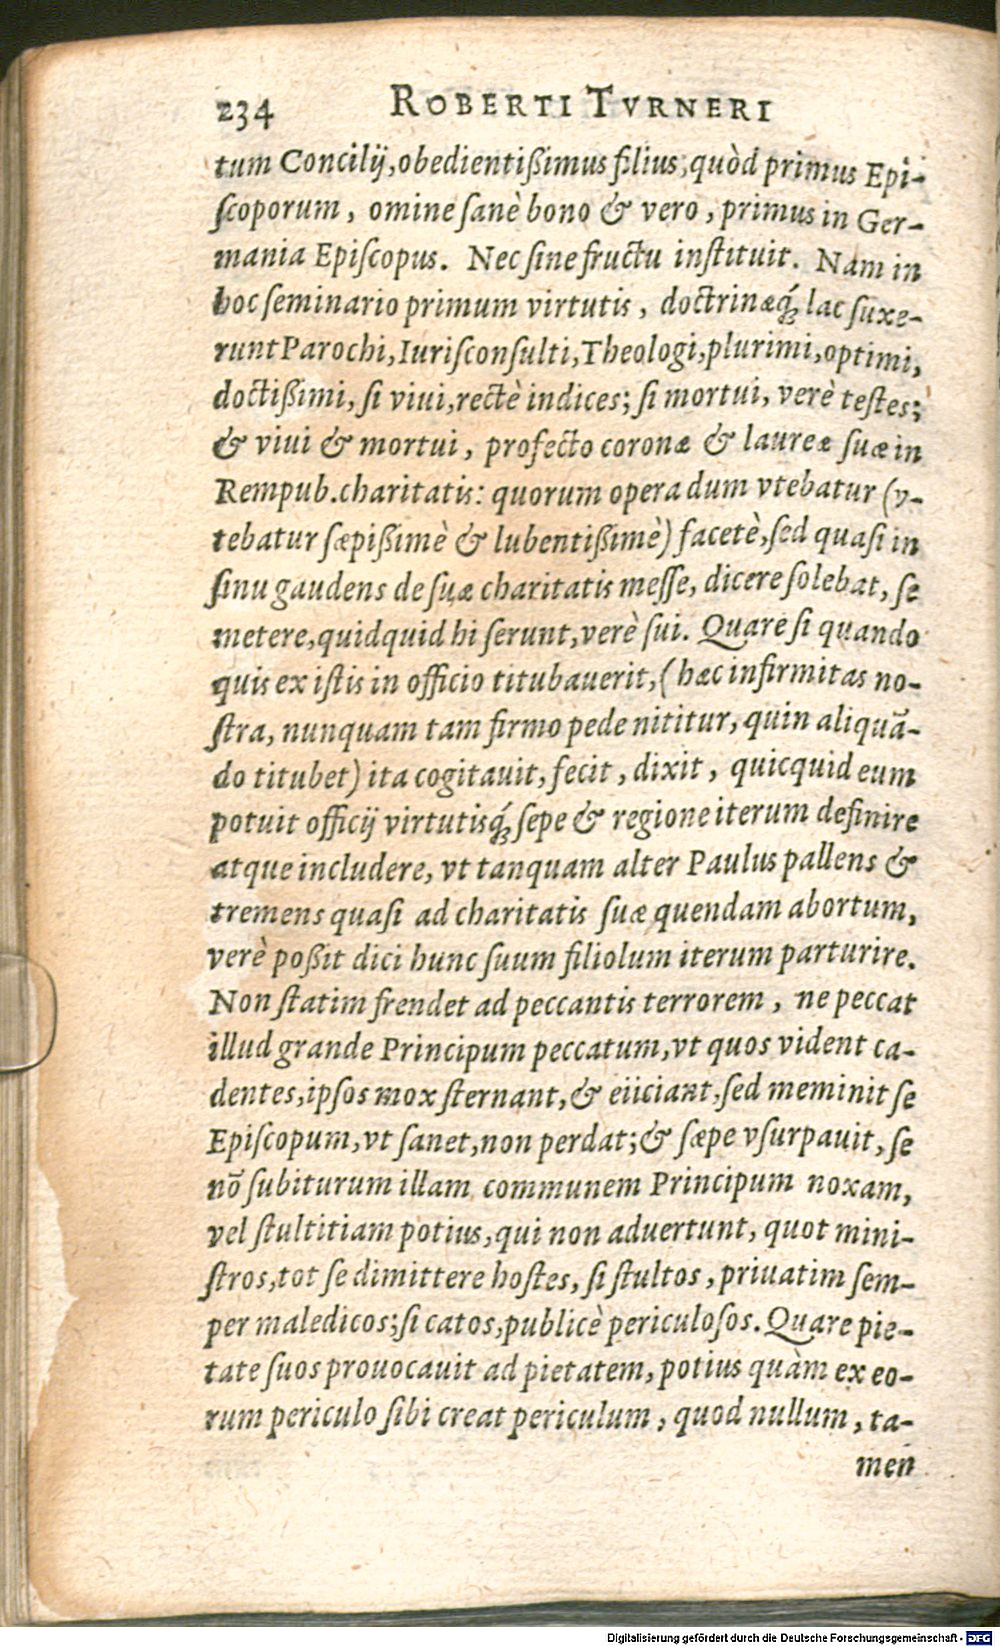 234 ROBERTI TVRNERI
tum Concilij, obedientißimus filius, quòd primus Epi-
ſcoporum, omine ſanè bono & vero, primus in Ger-
mania Epiſcopus. Nec ſine fructu inſtituit. Nam in
hoc ſeminario primum virtutis, doctrinæq́ꝫ lac ſuxe-
runt Parochi, Iuriſconſulti, Theologi, plurimi, optimi,
doctißimi, ſi viui, rectè indices; ſi mortui, verè teſtes;
& viui & mortui, profecto coronæ & laureæ ſuæ in
Rempub. charitatis: quorum opera dum vtebatur (v-
tebatur ſæpißimè & lubentißimè) facetè, ſed quaſi in
ſinu gaudens de ſuæ charitatis meſſe, dicere ſolebat, ſe
metere, quidquid hi ſerunt, verè ſui. Quare ſi quando
quis ex iſtis in officio titubauerit, (hæc infirmitas no-
ſtra, nunquam tam firmo pede nititur, quin aliquã-
do titubet) ita cogitauit, fecit, dixit, quicquid eum
potuit officij virtutisq́ꝫ ſepe & regione iterum definire
atque includere, vt tanquam alter Paulus pallens &
tremens quaſi ad charitatis ſuæ quendam abortum,
verè poßit dici hunc ſuum filiolum iterum parturire.
Non ſtatim frendet ad peccantis terrorem, ne peccat
illud grande Principum peccatum, vt quos vident ca-
dentes, ipſos mox ſternant, & eiiciant, ſed meminit ſe
Epiſcopum, vt ſanet, non perdat; & ſæpe vſurpauit, ſe
nõ ſubiturum illam communem Principum noxam,
vel ſtultitiam potius, qui non aduertunt, quot mini-
ſtros, tot ſe dimittere hoſtes, ſi ſtultos, priuatim ſem-
per maledicos; ſi catos, publicè periculoſos. Quare pie-
tate ſuos prouocauit ad pietatem, potius quàm ex eo-
rum periculo ſibi creat periculum, quod nullum, ta-
men
Digitalisierung gefördert durch die Deutsche Forschungsgemeinschaft - DFG